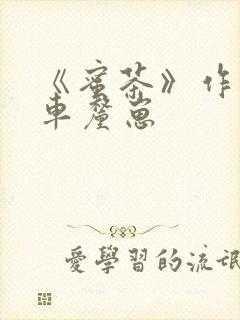 《蜜茶》作
車釐崽
愛學習的流氓